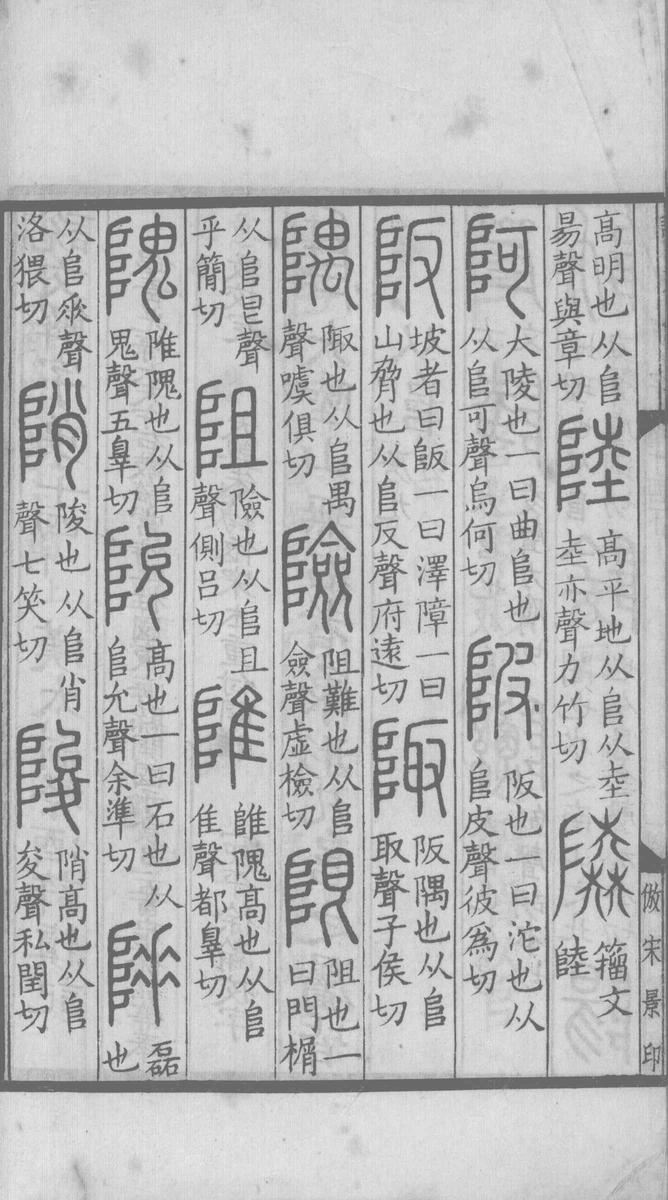 高明也从𨸏昜聲與章切 陸 高平地从𨸏从坴坴亦聲力竹切 𨽰 籒文陸
阿 大陵也一曰曲𨸏也从𨸏可聲烏何切 陂 阪也一曰沱也从𨸏皮聲彼爲切
阪 坡者曰阪一曰澤障一曰山脅也从𨸏反聲府遠切 陬 阪隅也从𨸏取聲子侯切
隅 陬也从𨸏禺聲噳俱切 險 阻難也从𨸏僉聲虛檢切 限 阻也一曰門榍
从𨸏㫐聲乎簡切 阻 險也从𨸏且聲側呂切 陮 陮隗高也从𨸏隹聲都辠切
隗 陮隗也从𨸏鬼聲五辠切 阭 高也一曰石也从𨸏允聲余準切 𨻌 磊也
从𨸏𠂢聲洛猥切 陗 陵也从𨸏肖聲七笑切 陖 陗高也从𨸏夋聲私閏切
倣宋景印